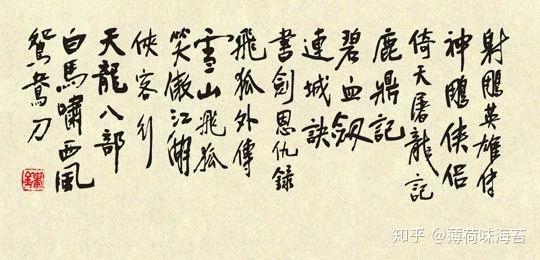 射鵰英雄传
神鵰侠侣
倚天屠龍記
鹿鼎記
碧血劔
連城訣
書劍恩仇錄
飛狐外傳
雪山飛狐
笑傲江湖
俠客行
天龍八部
白馬嘯西風
鴛鴦刀
知乎 @薄荷味海苔